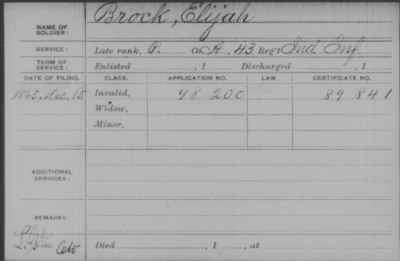 NAME OF SOLDIER: Brock, Elijah
SERVICE: Late rank, P. Co. A, 43 Reg't Ind Inf.
TERM OF SERVICE: Enlisted , 1 Discharged , 1
DATE OF FILING. CLASS. APPLICATION NO. LAW. CERTIFICATE NO.
1865, Dec, 15 Invalid, 98 200 89 841
Widow,
Minor,
ADDITIONAL SERVICES:
REMARKS:
Died , 1 , at